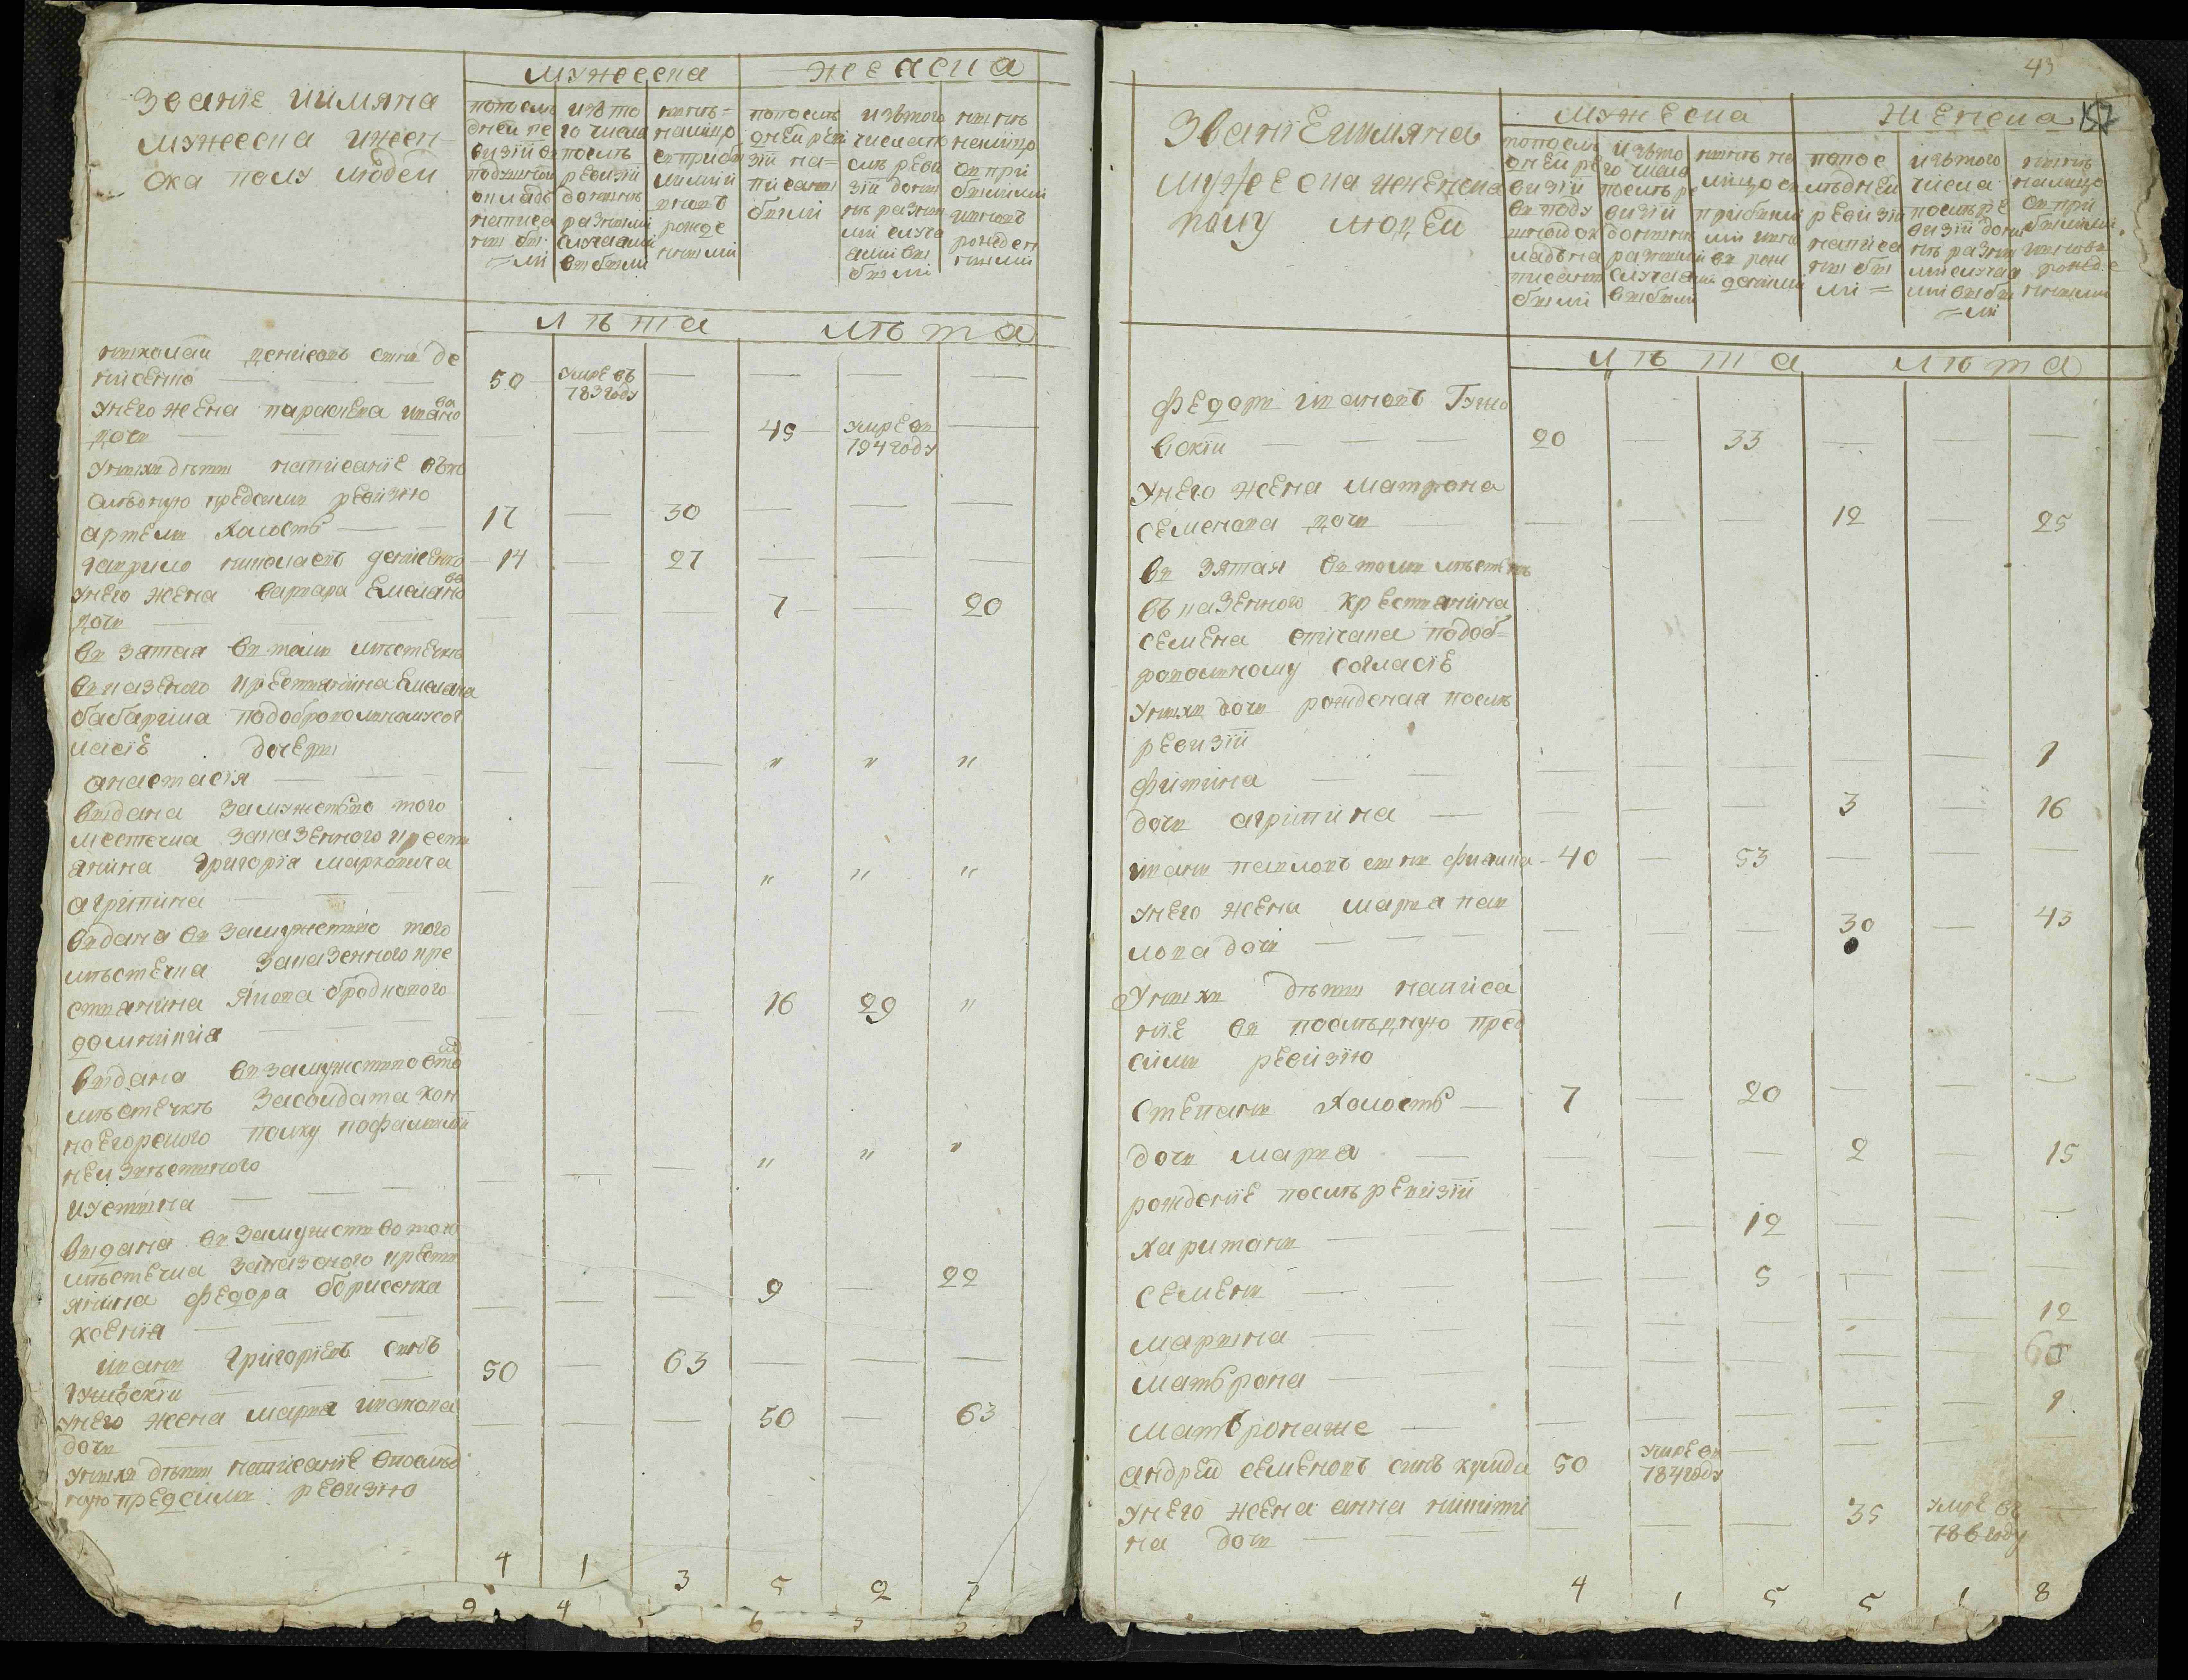 мужеска
женска
Званїе и имяна
мужеска и жен
ска полу людей
по последней ревизiи в подушной оклад написанные были
из того числа после ревизiи до ныне разными случаями выбыли
ныне на лицо с прибылими и вновь рожденными
по последней ревизiи написаны были
из того числа после ревизiи до ныне разными случаями выбыли
ныне на лицо с прибылими и вновь рожденными
лѣта
лѣта
николай денисовъ сынъ де
нисенко 50 умре въ 783 году
у него жена параскева ивано
ва дочь 45 умре въ 794 году
у нихъ дѣти написанїе въ по
слѣдную предсимъ ревизїю
артемъ холостъ 17 30
гаврило николаевъ денисенко 14 27
у него жена варвара Емелїано
ва дочь 7 20
взятая въ томъ мѣстечкѣ
в казеного крестянина Емелїана
бабарика по добровольному сог
ласїе дочери
анастасїя " " "
выдана замужство того
местечка за казенного крести
янина григорїя марковича
агрипина " " "
видана въ замужство того
мѣстечка за казенного кре
стянина якова бродского
домникїя 16 29 "
выдана въ замужство въ томъ
мѣстечкѣ за солдата кон
ноегорского полку по фамилїи
неизвѣстного
иустина " " "
видана въ замужство того
мѣстечка за казеного крести
янина федора борисенка
ксенїя 9 22
иванъ григорїевъ синъ
гумвскїи 50 63
у него жена марфа иванова
дочь 50 63
у нихъ дѣти написанїе в послѣд
ную предсимъ ревизїю
4 1 3 5 2
43
мужеска
женска
Званїе и имяна
мужеска и женска
полу людей
по последней ревизiи в подушной оклад написаны были
из того числа после ревизiи до ныне разными случаями выбыли
ныне на лицо с прибылими и вновь рожденими
по последней ревизiи написаны были
из того числа после ревизiи до ныне разними случаями выбыли
ныне на лицо с прибылими и вновь рожденными
лѣта
лѣта
федоръ ивановъ Гумо
вскїи 20 33
у него жена матрона
семенова дочь 12 25
взятая въ томъ мѣстечкѣ
въ казенного крестянина
семена по доб
ровольному согласїе
у нихъ дочь рожденая послѣ
ревизїи
фитина 1
дочь агрипина 3 16
иванъ павловъ синъ 40 53
у него жена марфа пав
лова дочь 30 43
у нихъ дѣти написа
нїе въ послѣдную пред
симъ ревизїю
степанъ холостъ 7 20
дочь марфа 2 15
рожденїе послѣ ревизїи
харитонъ 12
семенъ 5
марина 12
матрона
матрона же 1
андрей семеновъ синъ 50 умре въ 784 году
у него жена анна никити
на дочь 35 умре въ 786 году
4 1 5 5 1 8